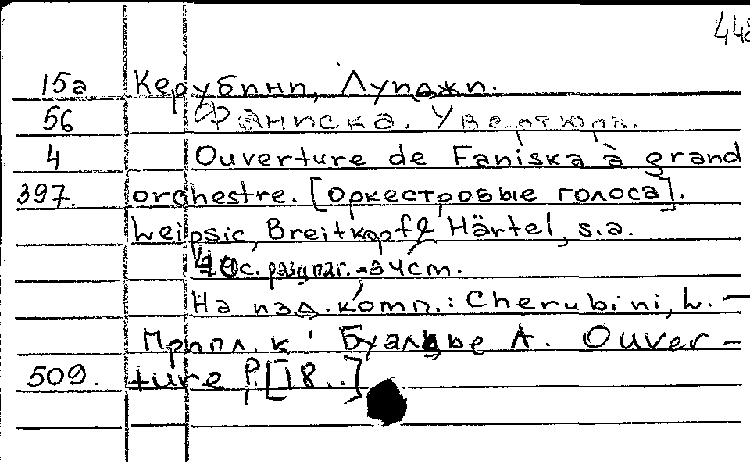 448
15а Керубини, Луиджи.
56 Фаниска. Увертюра.
4 Ouverture de Faniska à grand
397. orchestre. [оркестровые голоса].
Leipsic, Breitkopf & Härtel, s.a.
с. разд. паг. 34см.
На изд. комп.: Cherubini, L. —
Припл. к: Буальдье А. Ouver-
509. ture [18..]